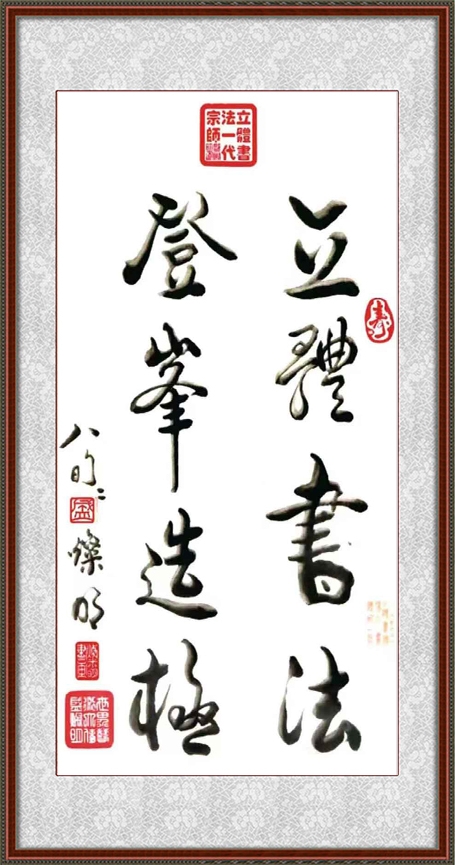 立體書
法一代
宗師
立體書法
壽
登峯造極
八旬二
盛
燦明